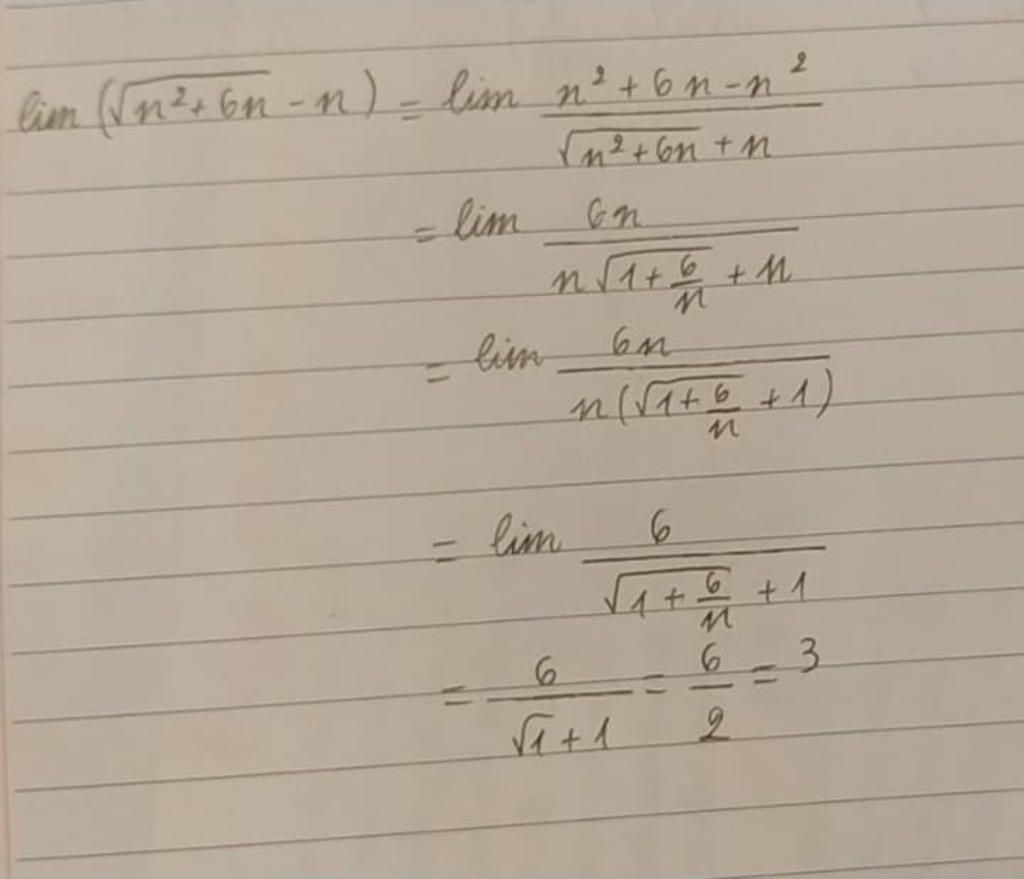 lim (√(n²+6n) - n) = lim (n²+6n-n²)/(√(n²+6n)+n)
= lim 6n/(n√(1+6/n)+n)
= lim 6n/(n(√(1+6/n)+1))
= lim 6/(√(1+6/n)+1)
= 6/(√1+1) = 6/2 = 3